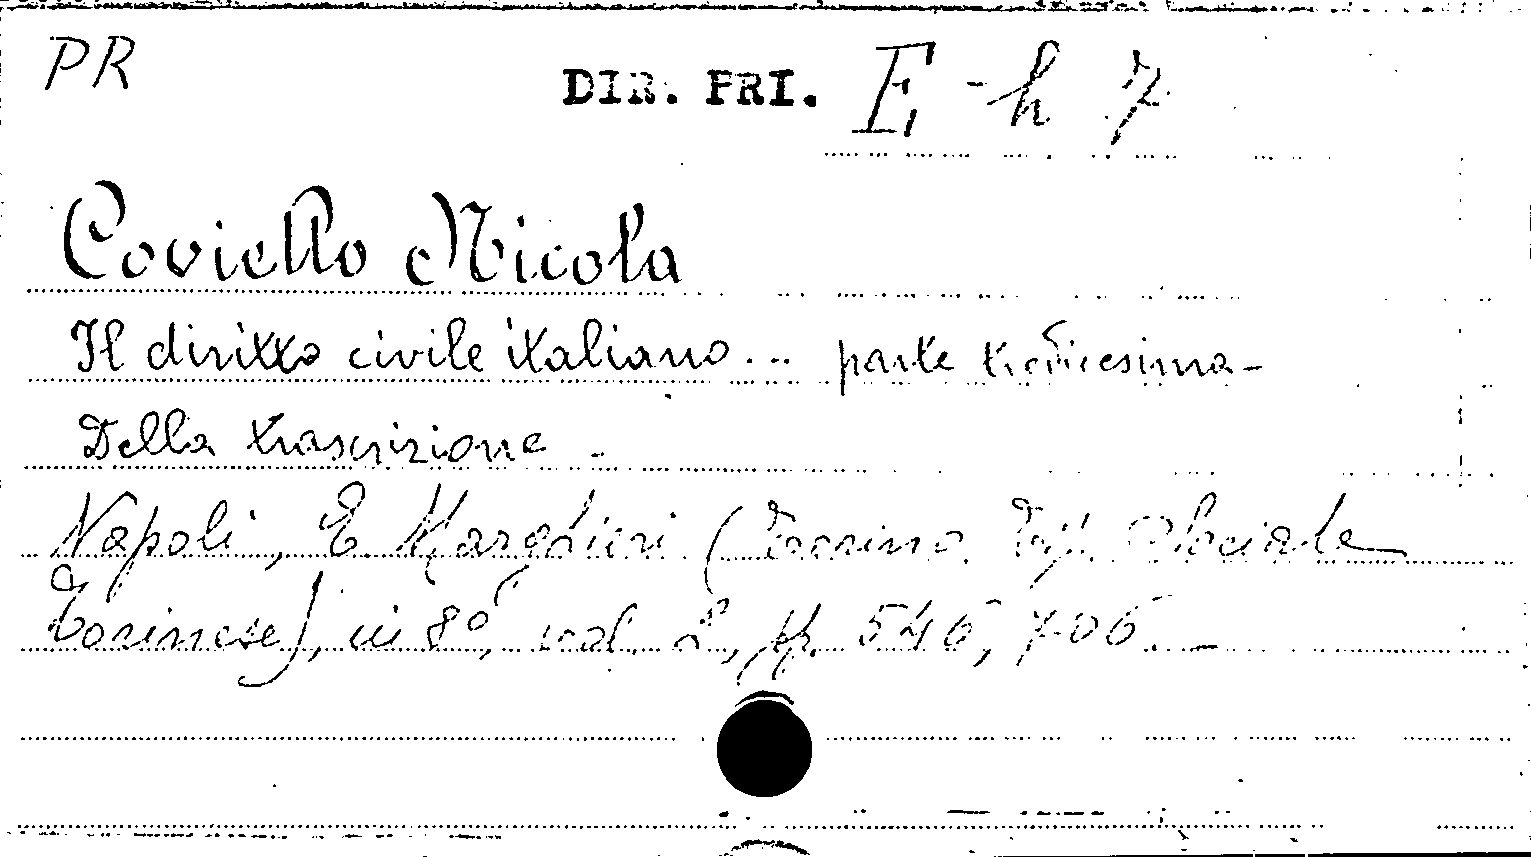 PR
DIR. PRI. E-h 7
Coviello Nicola
Il diritto civile italiano... parte tredicesima-
Della trascrizione -
Napoli, E. Marghieri (Torino. Tip. Sociale
Torinese), in 8°, vol. 2, pp. 546, 706. -